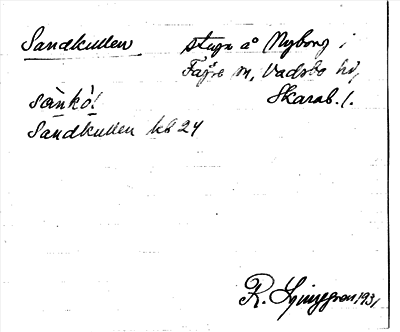 Sandkullen
stuga å Nyborg i
Fägre sn, Vadsbo hd,
Skarab. l.
sànkò!
Sandkullen kb 24
R. Ljunggren 1931